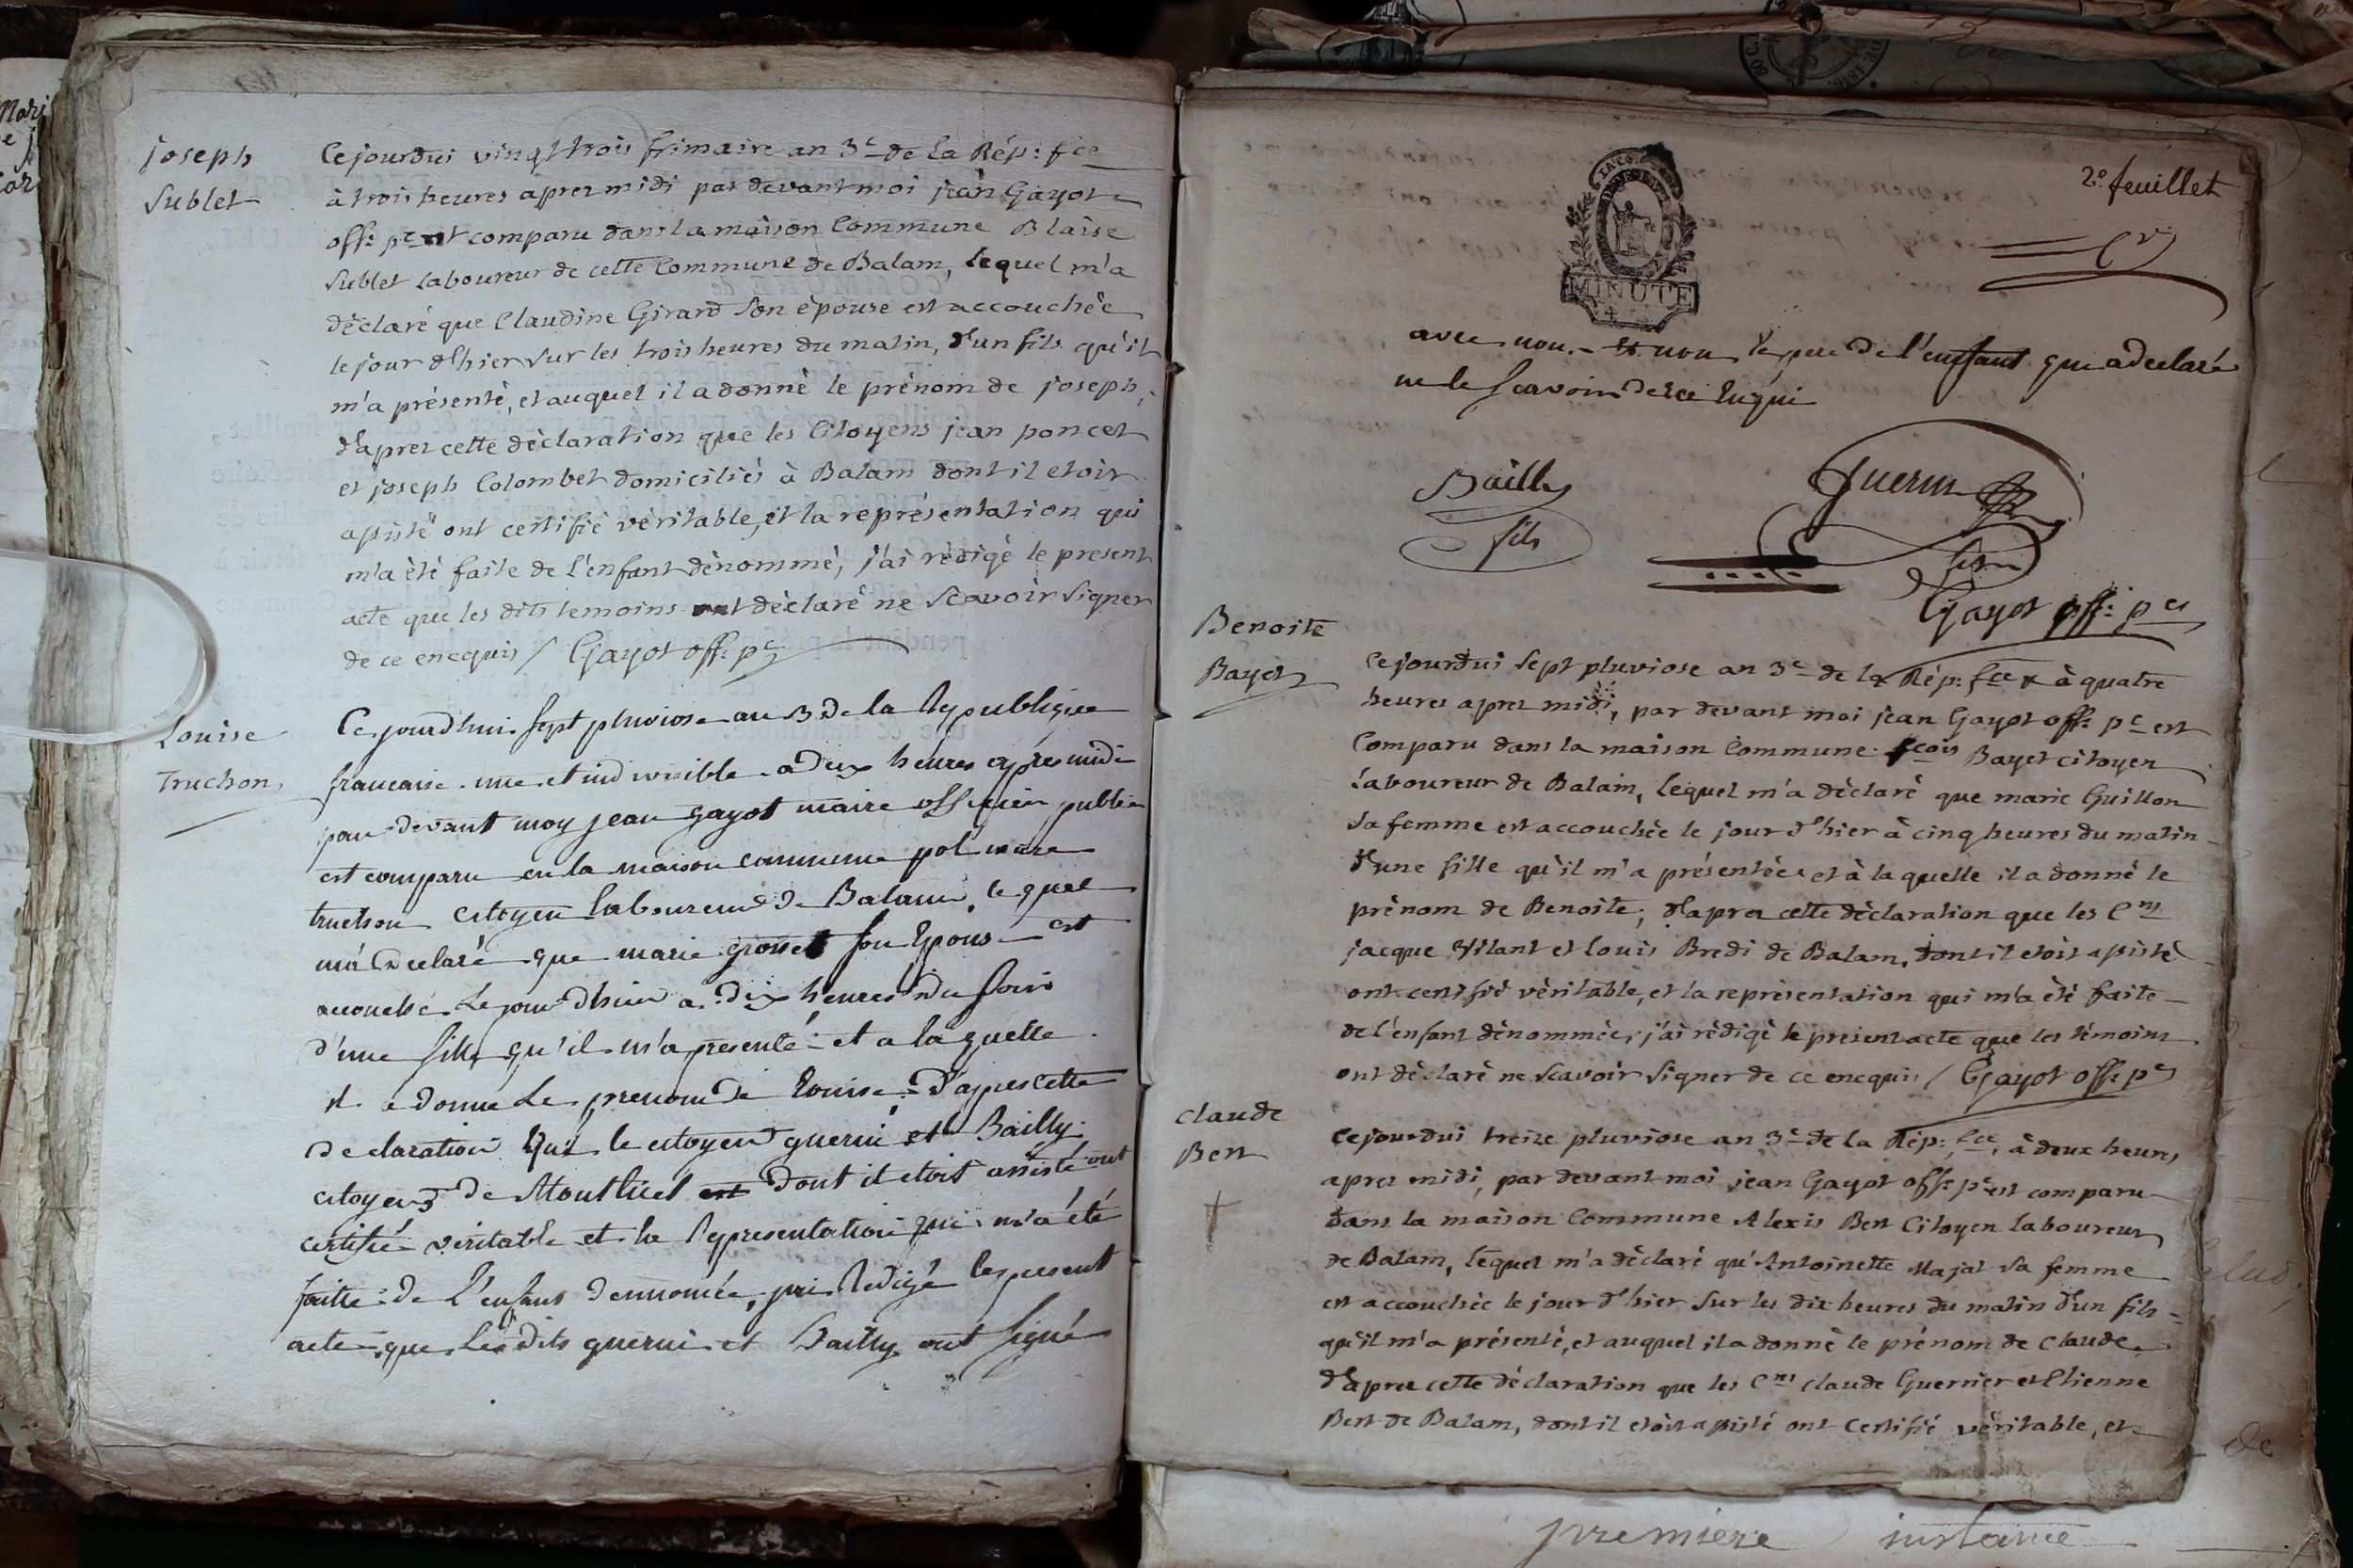 joseph
Sublet
Cejourdui vingt trois frimaire an 3e de la Rép: fce
à trois heures apres midi par devant moi jean Gayot
off: pc est comparu dans la maison Commune Blaise
Sublet Laboureur de cette Commune de Balam, lequel m'a
dèclaré que Claudine Girard Son épouse est accouchée
le jour d'hier sur les trois heures du matin, d'un fils qu'il
m'a présenté, et auquel il a donnè le prènom de joseph,
d'apres cette dèclaration que les Citoyens jean poncet
et joseph Colombet domiciliés à Balam dont il etoit
assisté ont certifié vèritable, et la reprèsentation qui
m'a èté faite de l'enfant dènommé, j'ai rèdigè le present
acte que les dits temoins ont dèclaré ne Scavoir Signer
de ce encquis / Gayot off: pc
Louise
Truchon
Ce jourdhui sept pluviose an 3 de la Republique
francaise une et indivisible a dix heures apres midi
par devant moy jean gayot maire officier public
est comparu en la maison commune
truchon citoyen laboureur de Balam, lequel
m'a declaré que marie grosset son Epouse est
accouché le jour d'hier a dix heures du soir
d'une fille qu'il m'a presenté et a laquelle
il a donné le prenom de Louise, D'apres cette
declaration que le citoyen guerin et Bailly
citoyens de Montluel dont il etoit assisté ont
certifié veritable et la Representation qui m'a été
faitte de l'enfant dennomée, jai Redigé le present
acte que les dits guerin et Bailly ont signé
2e feuillet
LA LOI
MINUTE
4
avec nou. et non le pere de l'enfant qui a declaré
ne le scavoir de ce Enquis
Bailly
fils
Guerin
fils
Gayot off: pc
Benoite
Bayet
Cejourdui Sept pluviose an 3e de la Rép: fce à quatre
heures apres midi, par devant moi jean Gayot off: pc est
Comparu dans la maison Commune fcois Bayet citoyen
Laboureur de Balam, lequel m'a déclaré que marie Guillon
sa femme est accouchée le jour d'hier à cinq heures du matin
d'une fille qu'il m'a présentée et à laquelle il a donné le
prènom de Benoite; d'apres cette dèclaration que les Cns
jacque Vilant et Louis Bredi de Balam, dont il etoit assisté
ont certifié vèritable, et la reprèsentation qui m'a èté faite
de l'enfant dènommée, j'ai rèdigè le present acte que les tèmoins
ont dèclaré ne Scavoir Signer de ce encquis / Gayot off: pc
Claude
Bert
Cejourdui treize pluviose an 3e de la Rép: fce, à deux heures
apres midi, par devant moi jean Gayot off: pc est comparu
dans la maison Commune Alexis Bert Citoyen laboureur
de Balam, lequel m'a dèclaré qu'Antoinette Majat Sa femme
est accouchée le jour d'hier Sur les dix heures du matin d'un fils
qu'il m'a présenté, et auquel il a donnè le prénom de Claude
d'apres cette déclaration que les Cns Claude Guernier et Etienne
Bert de Balam, dont il etoit assisté ont certifié vèritable, et
de
premiere instance